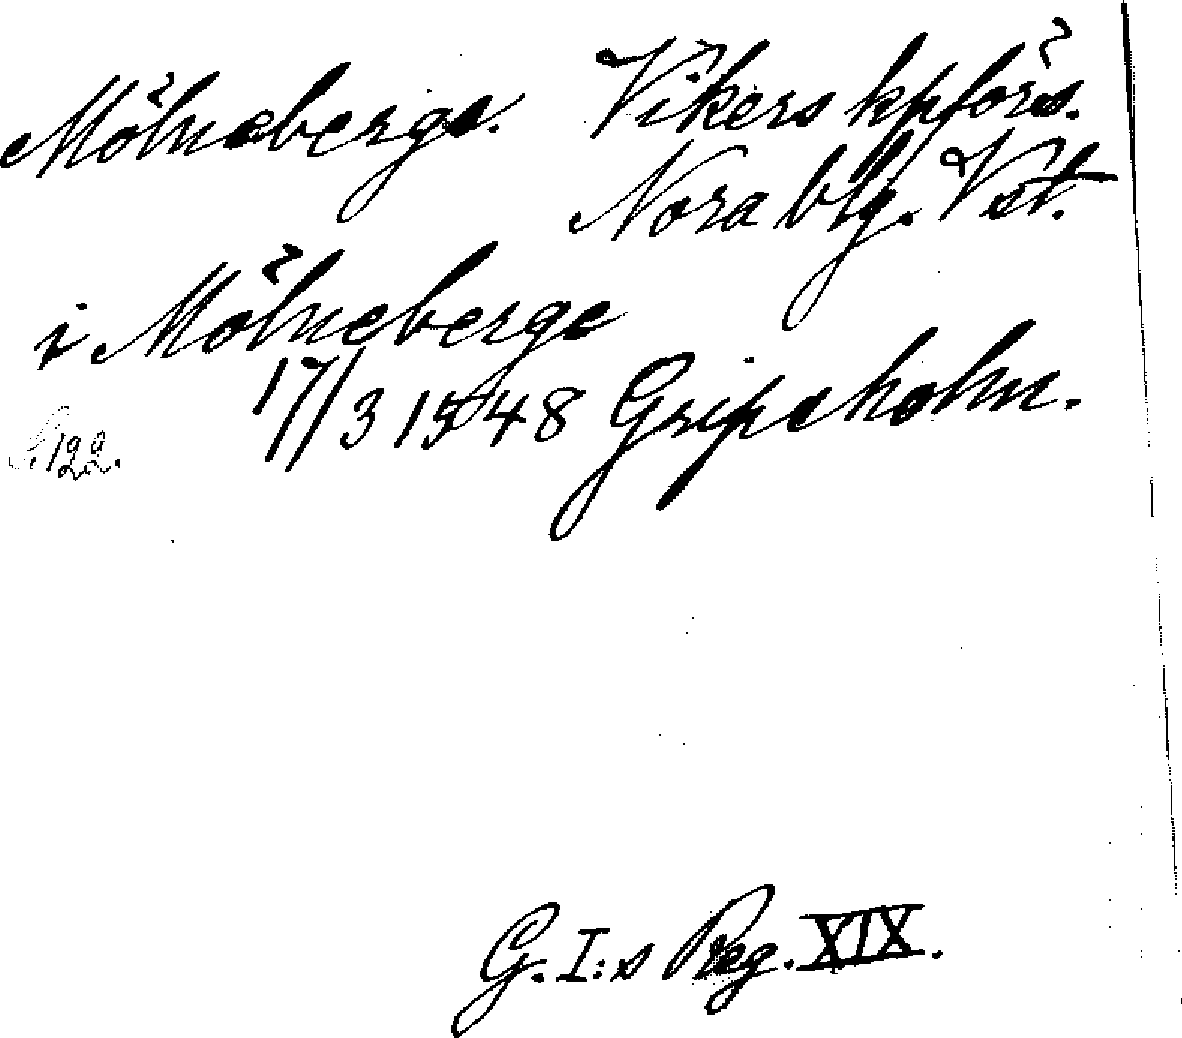 Mölneberga. Vikers kpförs.
Nora blg. Vst.
i Mölneberge
17/3 1548 Gripsholm.
S. 122.
G. I:s Reg. XIX.